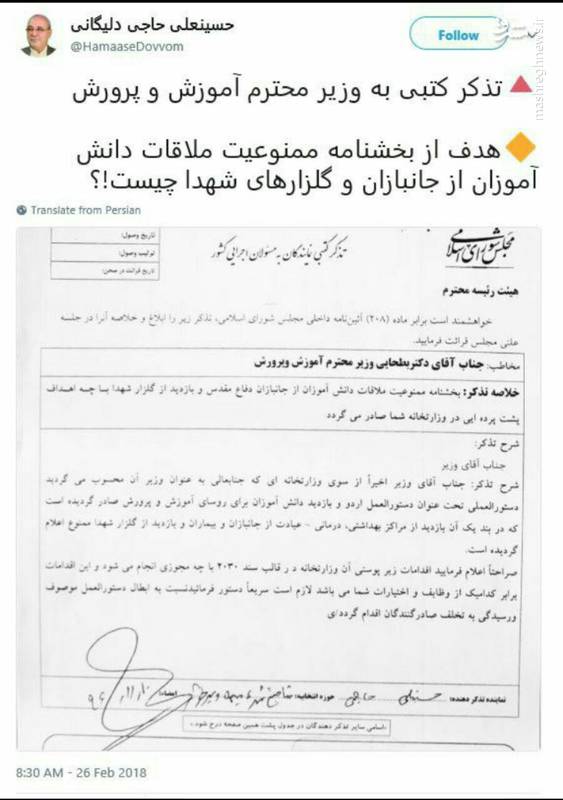 حسینعلی حاجی دلیگانی
@HamaaseDovvom
Follow
مشرق
mashreghnews.ir
تذکر کتبی به وزیر محترم آموزش و پرورش
هدف از بخشنامه ممنوعیت ملاقات دانش
آموزان از جانبازان و گلزارهای شهدا چیست!؟
Translate from Persian
مجلس شورای اسلامی
تذکر کتبی نمایندگان به مسئولان اجرایی کشور
تاریخ وصول:
ترتیب وصول:
تاریخ قرائت در صحن:
هیئت رئیسه محترم
خواهشمند است برابر ماده (۲۰۸) آئین‌نامه داخلی مجلس شورای اسلامی، تذکر زیر را ابلاغ و خلاصه آنرا در جلسه
علنی مجلس قرائت فرمایید.
مخاطب: جناب آقای دکتربطحایی وزیر محترم آموزش وپرورش
خلاصه تذکر: بخشنامه ممنوعیت ملاقات دانش آموزان از جانبازان دفاع مقدس و بازدید از گلزار شهدا بـا چـه اهـداف
پشت پرده ایی در وزارتخانه شما صادر می گردد
شرح تذکر:
جناب آقای وزیر
شرح تذکر: جناب آقای وزیر اخیراً از سوی وزارتخانه ای که جنابعالی به عنوان وزیر آن محسوب می گردید
دستورالعملی تحت عنوان دستورالعمل اردو و بازدید دانش آموزان برای روسای آموزش و پرورش صادر گردیده است
که در بند یک آن بازدید از مراکز بهداشتی، درمانی – عیادت از جانبازان و بیماران و بازدید از گلزار شهدا ممنوع اعلام
گردیده است.
صراحتاً اعلام فرمایید اقدامات زیر پوستی آن وزارتخانه د ر قالب سند ۲۰۳۰ با چه مجوزی انجام می شود و این اقدامات
برابر کدامیک از وظایف و اختیارات شما می باشد لازم است سریعاً دستور فرمائیدنسبت به ابطال دستورالعمل موصوف
ورسیدگی به تخلف صادرکنندگان اقدام گردد/ی
نماینده تذکر دهنده: حسینعلی حاجی حوزه انتخابیه: شاهین شهر و میمه و برخوار امضاء:
«اسامی سایر تذکر دهندگان در جدول پشت همین صفحه درج شود.»
8:30 AM - 26 Feb 2018